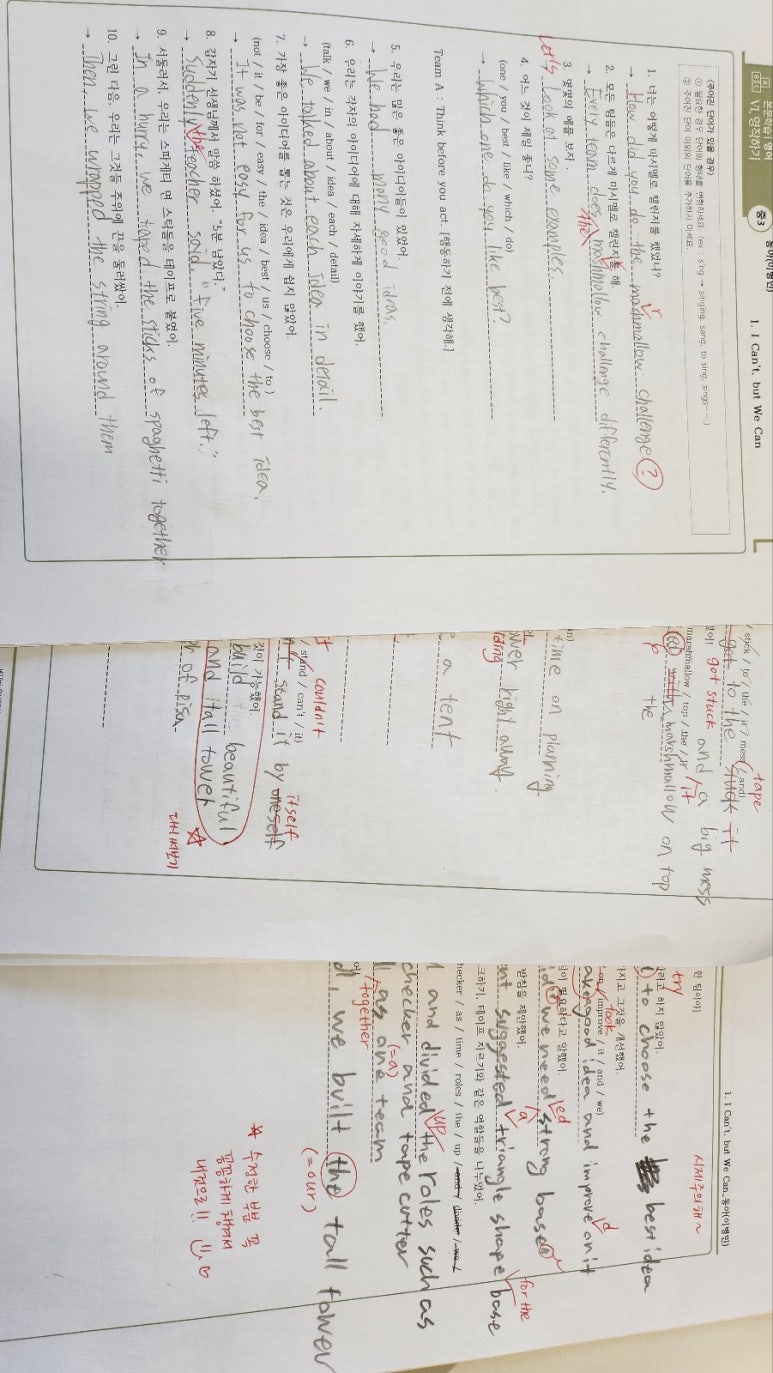 본문학습 영어
VI 영작하기
중3
동아(이병민)
1. I Can't, but We Can
(주어진 단어가 있을 경우)
① 필요한 경우 단어의 형태를 변형하세요. (ex : sing → singing, sang, to sing, sings……)
② 주어진 단어 이외의 단어를 추가하지 마세요.
1. 너는 어떻게 마시멜로 챌린지를 했었니?
→ How did you do the mashmallow challenge ?
r
2. 모든 팀들은 다르게 마시멜로 챌린지를 해.
→ Every team does mashmallow challenge differently.
the
r
3. 몇몇의 예를 보자.
Let's look at some examples.
4. 어느 것이 제일 좋니?
(one / you / best / like / which / do)
→ Which one do you like best?
Team A : Think before you act. [행동하기 전에 생각해.]
5. 우리는 많은 좋은 아이디어들이 있었어.
→ We had many good ideas.
6. 우리는 각자의 아이디어에 대해 자세하게 이야기를 했어.
(talk / we / in / about / idea / each / detail)
→ We talked about each idea in detail.
7. 가장 좋은 아이디어를 뽑는 것은 우리에게 쉽지 않았어.
(not / it / be / for / easy / the / idea / best / us / choose / to)
→ It was not easy for us to choose the best idea.
8. 갑자기 선생님께서 말씀 하셨어. "5분 남았다."
→ Suddenly the teacher said, "five minutes left."
9. 서둘러서, 우리는 스파게티 면 스틱들을 테이프로 붙였어.
→ In a hurry, we taped the sticks of spaghetti together
10. 그런 다음, 우리는 그것들 주위에 끈을 둘러쌌어.
→ Then, we wrapped the string around them
/ stick / to / the / it / mess / and)
tape
got to the stuck it
got stuck and a big mess
marshmallow / top / the /
it
marshmallow on top
the
time on planning
right away.
a tent
/ stand / can't / it)
couldn't
stand it by oneself
itself
것이 가능했어.
build beautiful
and itall tower
of Pisa
☆ 다시써보기
1. I Can't, but We Can_동아(이병민)
한 팀이야]
시제주의해~
려고 하지 않았어.
try
to choose the best idea
가지고 그것을 개선했어.
/ improve / it / and / we)
took
good idea and improve on it
d
필요하다고 말했어.
we need strong base
ed
a
받침을 제안했어.
suggested triangle shape base
a
for the
크하기, 테이프 자르기와 같은 역할들을 나누었어.
checker / as / time / roles / the / up / and / divide / we
and divided the roles such as
up
checker and tape cutter
(=a)
as one team
together
we built the tall tower
(=our)
☆ 수정한 부분 꼭
꼼꼼하게 챙겨서
내것으로!! ♡